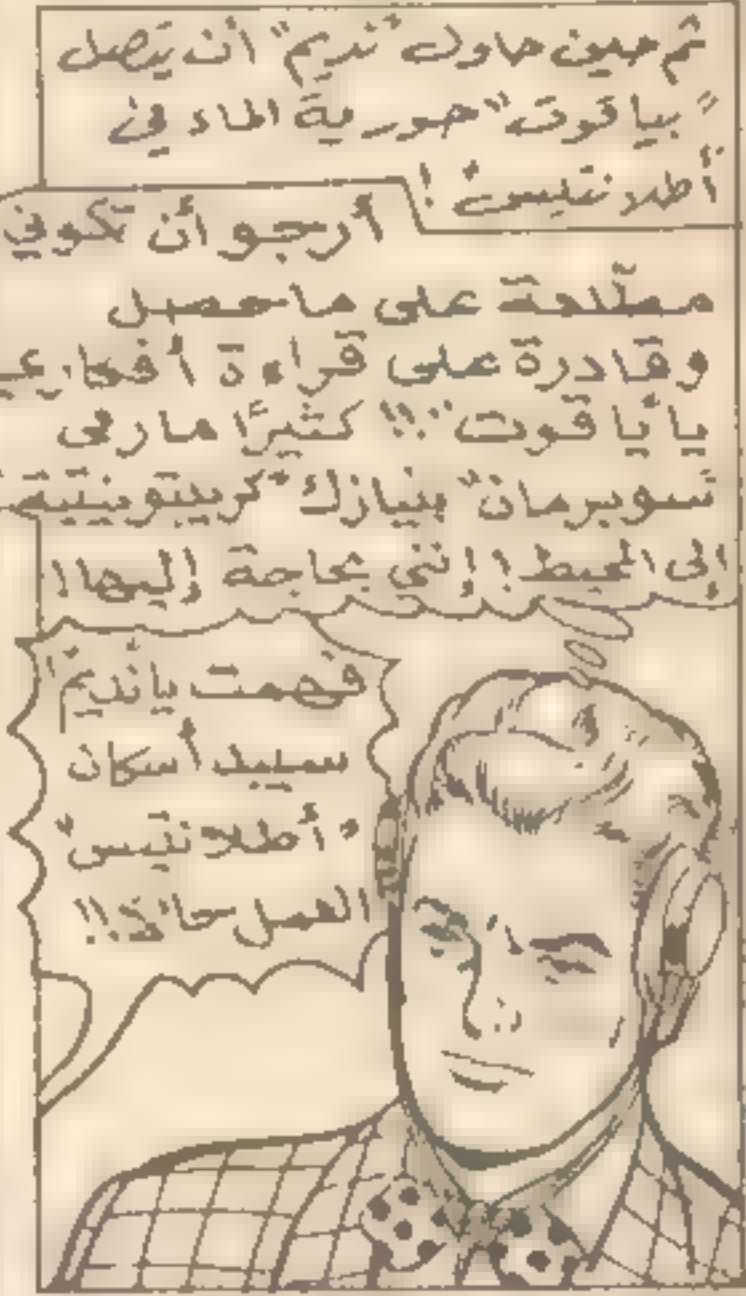 ثم حين حاول "نديم" أن يتصل
"بياقوت" حورية الماء في
أطلانتيس !
أرجو أن تكوني
مطّلعة على ما حصل
وقادرة على قراءة أفكاري
يا "ياقوت"!! كثيرًا ما رمى
"سوبرمان" بنيازك "كريبتونيتية"
إلى المحيط! إنني بحاجة إليها!
فهمت يا"نديم"
سيبدأ سكان
"أطلانتيس"
العمل حالاً!!